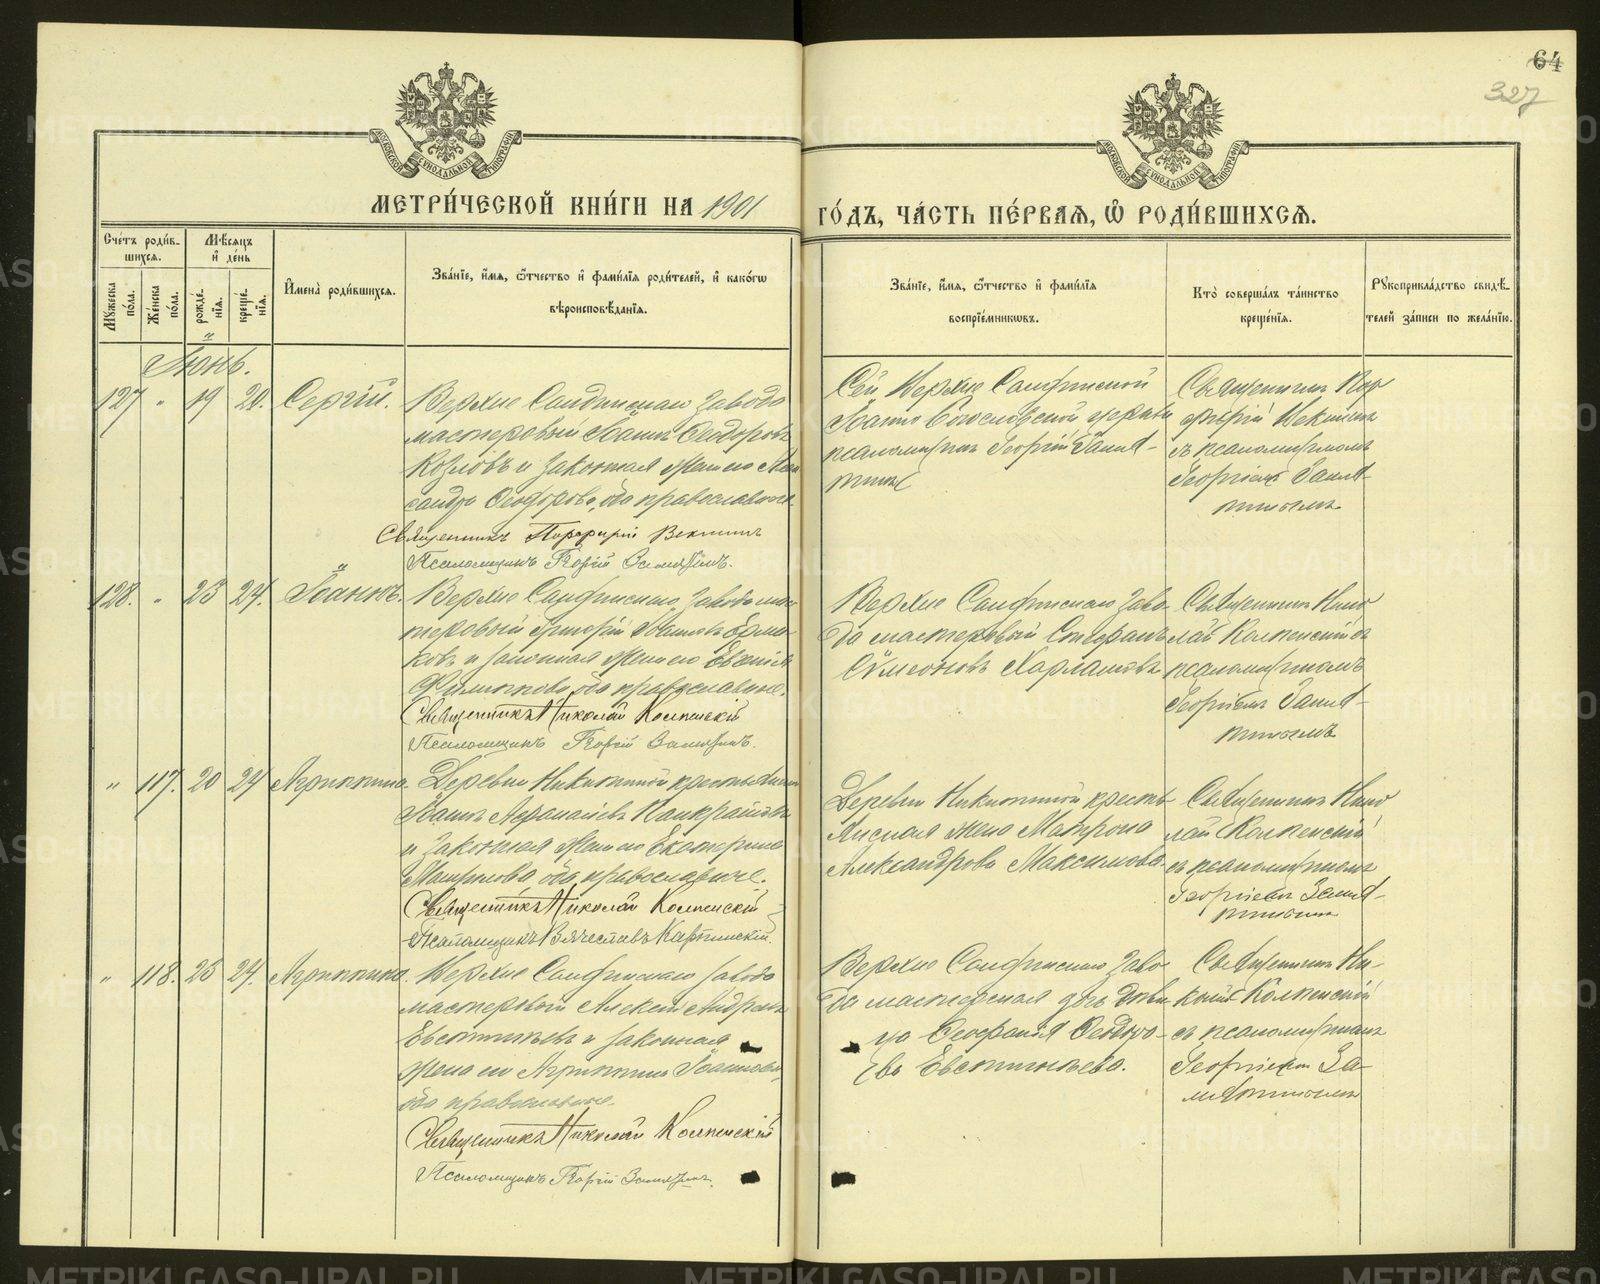 64
327
МОСКОВСКОЙ СѴНОДАЛЬНОЙ ТИПОГРАФІИ
МОСКОВСКОЙ СѴНОДАЛЬНОЙ ТИПОГРАФІИ
МЕТРИ́ЧЕСКОЙ КНИ́ГИ НА 1901
ГО́ДЪ, ЧА́СТЬ ПЕ́РВАЯ, Ѡ҆ РОДИ́ВШИХСЯ.
Сче́тъ роди́в-
шихся.
Мѣ́сяцъ
и҆ де́нь
Мꙋ́жеска по́ла.
Же́нска по́ла.
рожде́-
нїя.
креще́-
нїя.
И҆мена̀ роди́вшихся.
Зва́нїе, и҆́мя, ѻ҆́тчество и҆ фами́лїя роди́телей, и҆ како́гѡ
вѣроисповѣ́данїя.
Зва́нїе, и҆́мя, ѻ҆́тчество и҆ фами́лїя
воспрїе́мникѡвъ.
Кто̀ соверша́лъ та́инство
креще́нїя.
Рꙋкоприкла́дство свидѣ́-
телей за́писи по жела́нїю.
Іюнь.
127 " 19 20. Сергій.
Верхне Салдинскаго завода
мастеровый Іоаннъ Ѳеодоровъ
Козловъ и законная жена его Алек
сандра Ѳеодорова, оба православные.
Священникъ Порфирій
Псаломщикъ Георгій Замятинъ.
Сей Верхне Салдинской
Іоанно Богословской церкви
псаломщикъ Георгій Замя-
тинъ
Священникъ Пор
фирій
съ псаломщикомъ
Георгіемъ Замя-
тинымъ
128. " 23 24. Іоаннъ.
Верхне Салдинскаго завода мас
теровый Григорій Іоанновъ Ерма
ковъ и законная жена его Евгенія
Филиппова, оба православные.
Священникъ Николай
Псаломщикъ Георгій Замятинъ.
Верхне Салдинскаго заво
да мастеровый Стефанъ
Сѵмеоновъ Харламовъ
Священникъ Нико
лай съ
псаломщикомъ
Георгіемъ Замя-
тинымъ
" 117. 20 24 Агриппина.
Деревни Никитиной крестьянинъ
Іоаннъ Аѳанасіевъ Панкратовъ
и законная жена его Екатерина
оба православные.
Священникъ Николай
Псаломщикъ Вячеславъ
Деревни Никитиной кресть
янская жена Матрона
Александрова Максимова.
Священникъ Нико
лай
съ псаломщикомъ
Георгіемъ Замя-
тинымъ
" 118. 23 24. Агриппина.
Верхне Салдинскаго завода
мастеровый Алексій
Евстигнѣевъ и законная
жена его Агриппина Іоаннова,
оба православные.
Священникъ Николай
Псаломщикъ Георгій Замятинъ.
Верхне Салдинскаго заво
да мастерская дочь дѣви
ца Ѳеодоро-
ва Евстигнѣева.
Священникъ Ни-
колай
съ псаломщикомъ
Георгіемъ За-
мятинымъ
METRIKI.GASO-URAL.RU